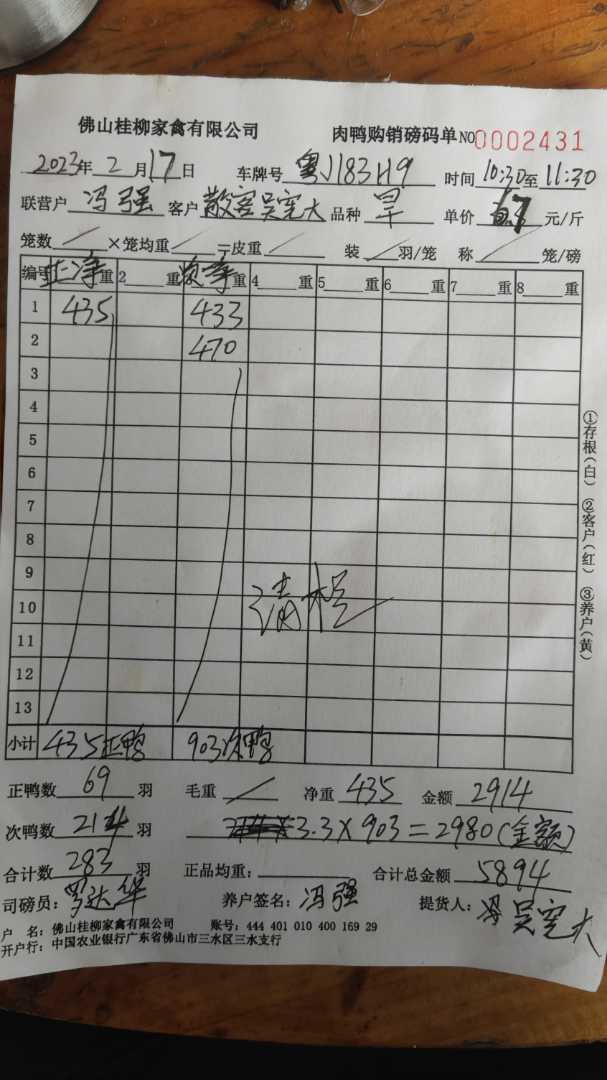 佛山桂柳家禽有限公司 肉鸭购销磅码单 NO 0002431
2023年 2 月 17 日 车牌号 粤J183H9 时间 10:30 至 11:30
联营户 冯强 客户 散客吴空大 品种 旱 单价 6.7 元/斤
笼数 / ×笼均重 / =皮重 / 装 / 羽/笼 称 / 笼/磅
编号 正净重 2 重 次净重 4 重 5 重 6 重 7 重 8 重
1 435 433
2 470
3
4
5
6
7
8
9
10
11
12
13
小计 435正鸭 903次鸭
正鸭数 69 羽 毛重 / 净重 435 金额 2914
次鸭数 214 羽 3.3×903=2980(金额)
合计数 283 羽 正品均重: 合计总金额 5894
司磅员: 罗达华 养户签名: 冯强 提货人: 吴空大
户 名: 佛山桂柳家禽有限公司 账号: 444 401 010 400 169 29
开户行: 中国农业银行广东省佛山市三水区三水支行
①存根(白) ②客户(红) ③养户(黄)